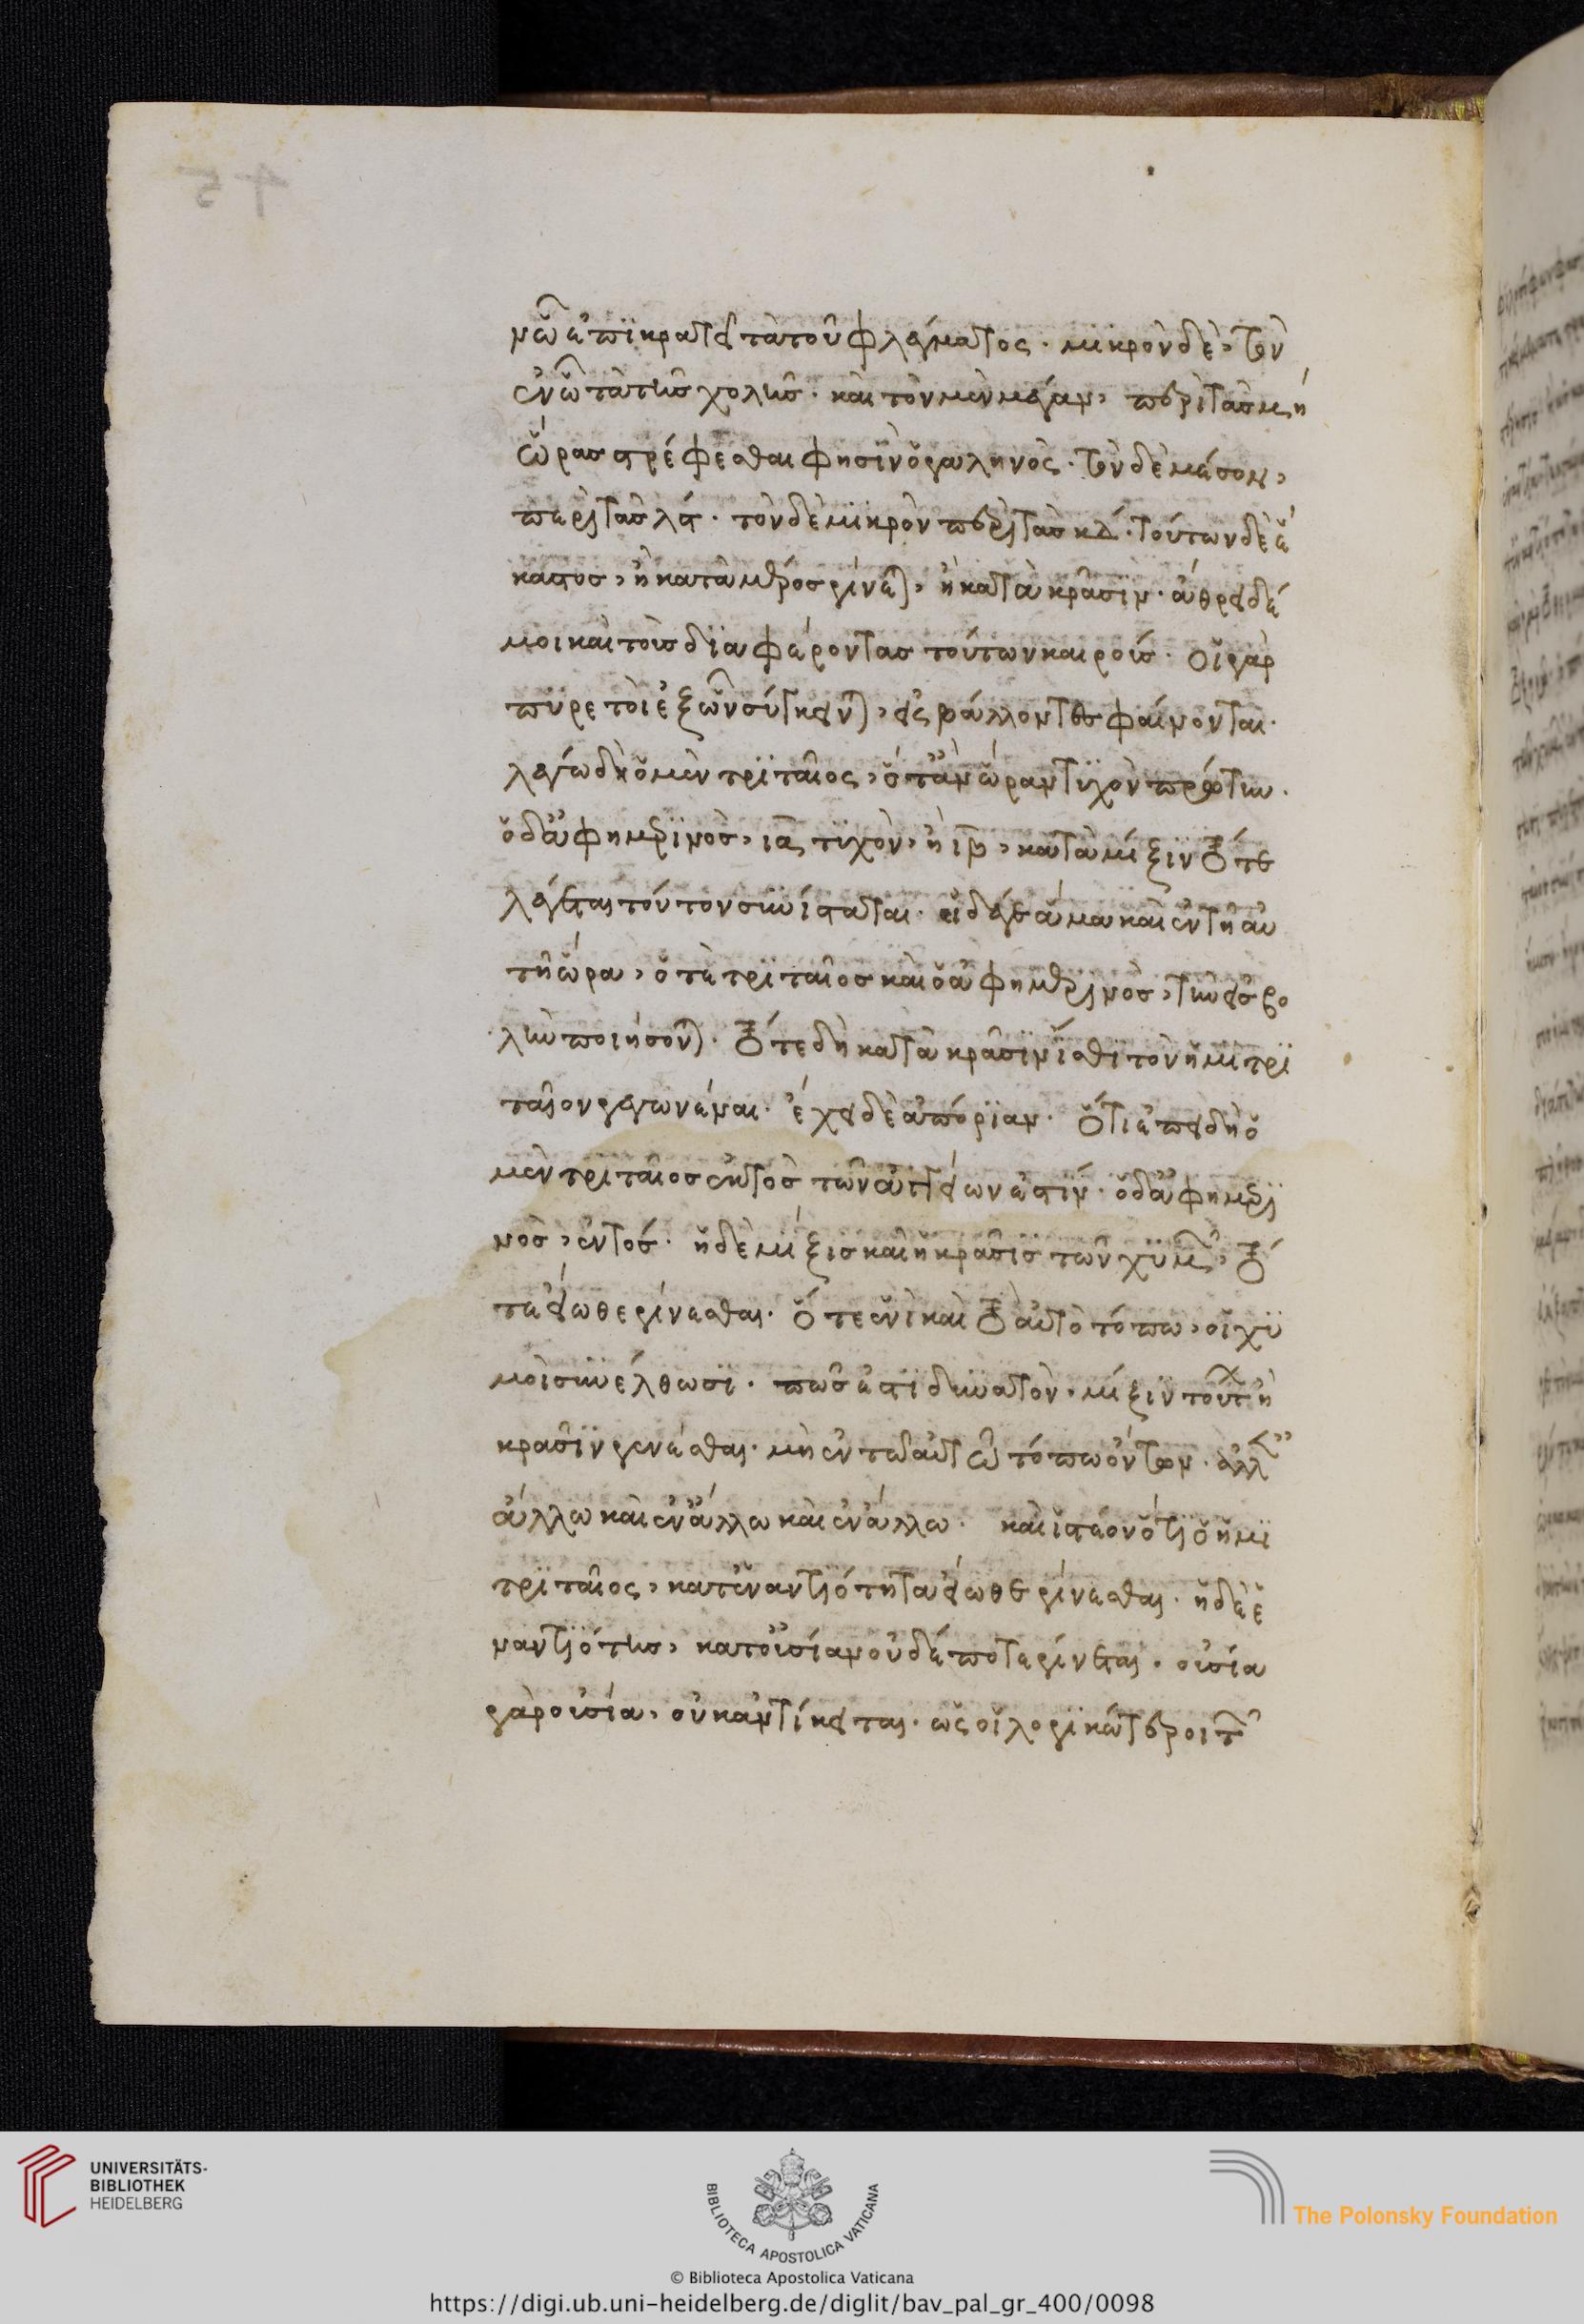 ν ᾧ ἐπικρατεῖ τὰ τοῦ φλέγματος. μικρὸν δὲ, τὸν
ἐν ᾧ τὰ τῆς χολῆς. καὶ τὸν μὲν μέγαν, περὶ τὰς μη
ὥρας στρέφεσθαι φησὶν ὁ γαληνός. τὸν δὲ μέσον,
περὶ τὰς λϛ. τὸν δὲ μικρὸν περὶ τὰς κδ. τούτων δὲ ἕ
καστος, ἢ κατὰ μέρος γίνεται, ἢ κατὰ κρᾶσιν. ἄθρει δέ
μοι καὶ τοὺς διαφέροντας τούτων καιρούς. οἱ γὰρ
πυρετοὶ ἐξ ὧν σύγκεινται, εἰσβάλλοντες φαίνονται.
λέγω δὴ ὁ μὲν τριταῖος, ὅταν ὥραν τυχὸν πρώτην.
ὁ δ' ἀφημερινὸς, ια τυχὸν, ἢ ιβ, κατὰ μίξιν τότε
λέγεται τοῦτον συνίστασθαι. εἰ δέ γε ἅμα καὶ ἐν τῇ αὐ
τῇ ὥρα, ὅ τε τριταῖος καὶ ὁ ἀφημερινὸς, τὴν εἰσβο
λὴν ποιήσονται. τότε δὴ κατὰ κρᾶσιν ἴσθι τὸν ἡμιτρι
ταῖον γεγωνέναι. ἔχει δὲ ἀπορίαν. ὅτι ἐπειδὴ ὁ
μὲν τριταῖος ἐκτὸς τῶν ἀγγείων ἐστὶν. ὁ δ' ἀφημερι
νὸς, ἐντός. ἡ δὲ μίξις καὶ ἡ κρᾶσις τῶν χυμῶν, τό
τε εἴωθε γίνεσθαι. ὅτε ἐν ἑνὶ καὶ τὸ αὐτὸ τόπω, οἱ χυ
μοὶ συνέλθωσι. πῶς ἐστι δυνατὸν, μίξιν τούτων ἢ
κρᾶσιν γενέσθαι. μὴ ἐν τῶ αὐτῶ τόπω ὄντων. ἀλλ'
ἄλλω καὶ ἐν ἄλλω καὶ ἐν ἄλλω. καὶ ἰστέον ὅτι ὁ ἡμι
τριταῖος, κατ' ἐναντιότητα εἴωθε γίνεσθαι. ἡ δὲ ἐ
ναντιότης, κατ' οὐσίαν οὐδέποτε γίνεται. οὐσία
γὰρ οὐσία, οὐκ ἀντίκειται. ὡς οἱ λογικώτεροι τῶν
UNIVERSITÄTS-
BIBLIOTHEK
HEIDELBERG
BIBLIOTECA APOSTOLICA VATICANA
The Polonsky Foundation
© Biblioteca Apostolica Vaticana
https://digi.ub.uni-heidelberg.de/diglit/bav_pal_gr_400/0098